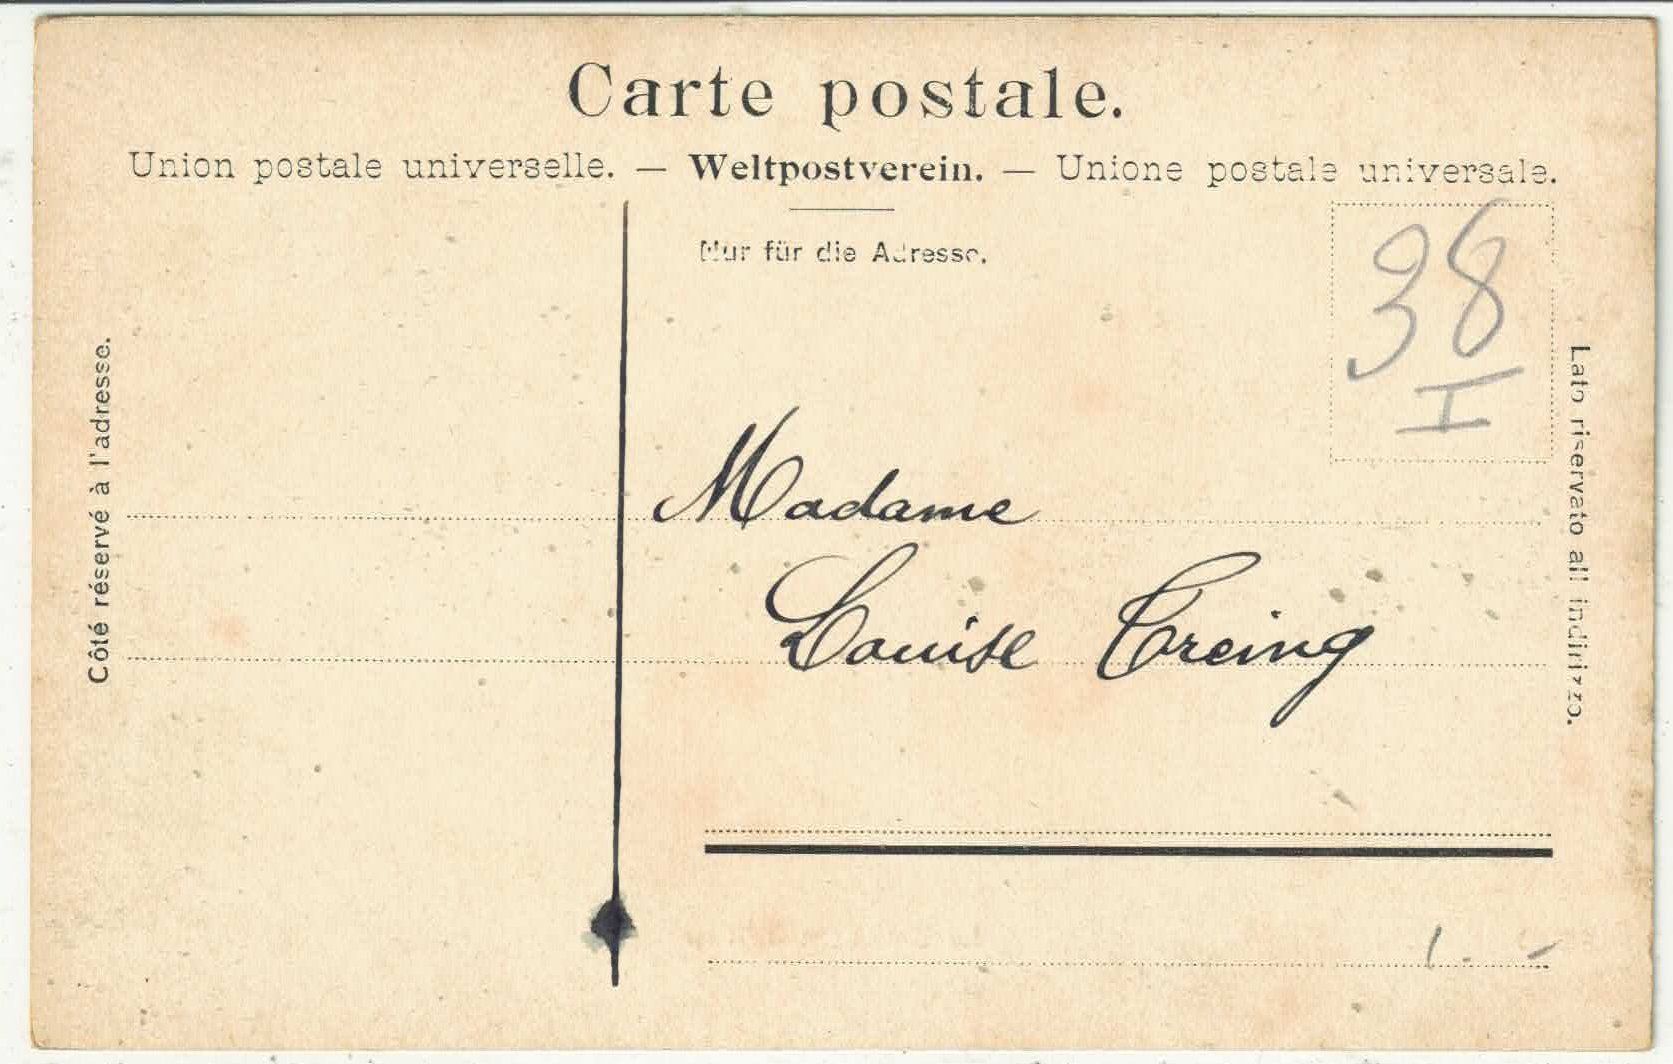 Carte postale.
Union postale universelle. — Weltpostverein. — Unione postale universale.
Nur für die Adresse.
Côté réservé à l'adresse.
Lato riservato all indirizzo.
38
I
Madame
Louise
1. -